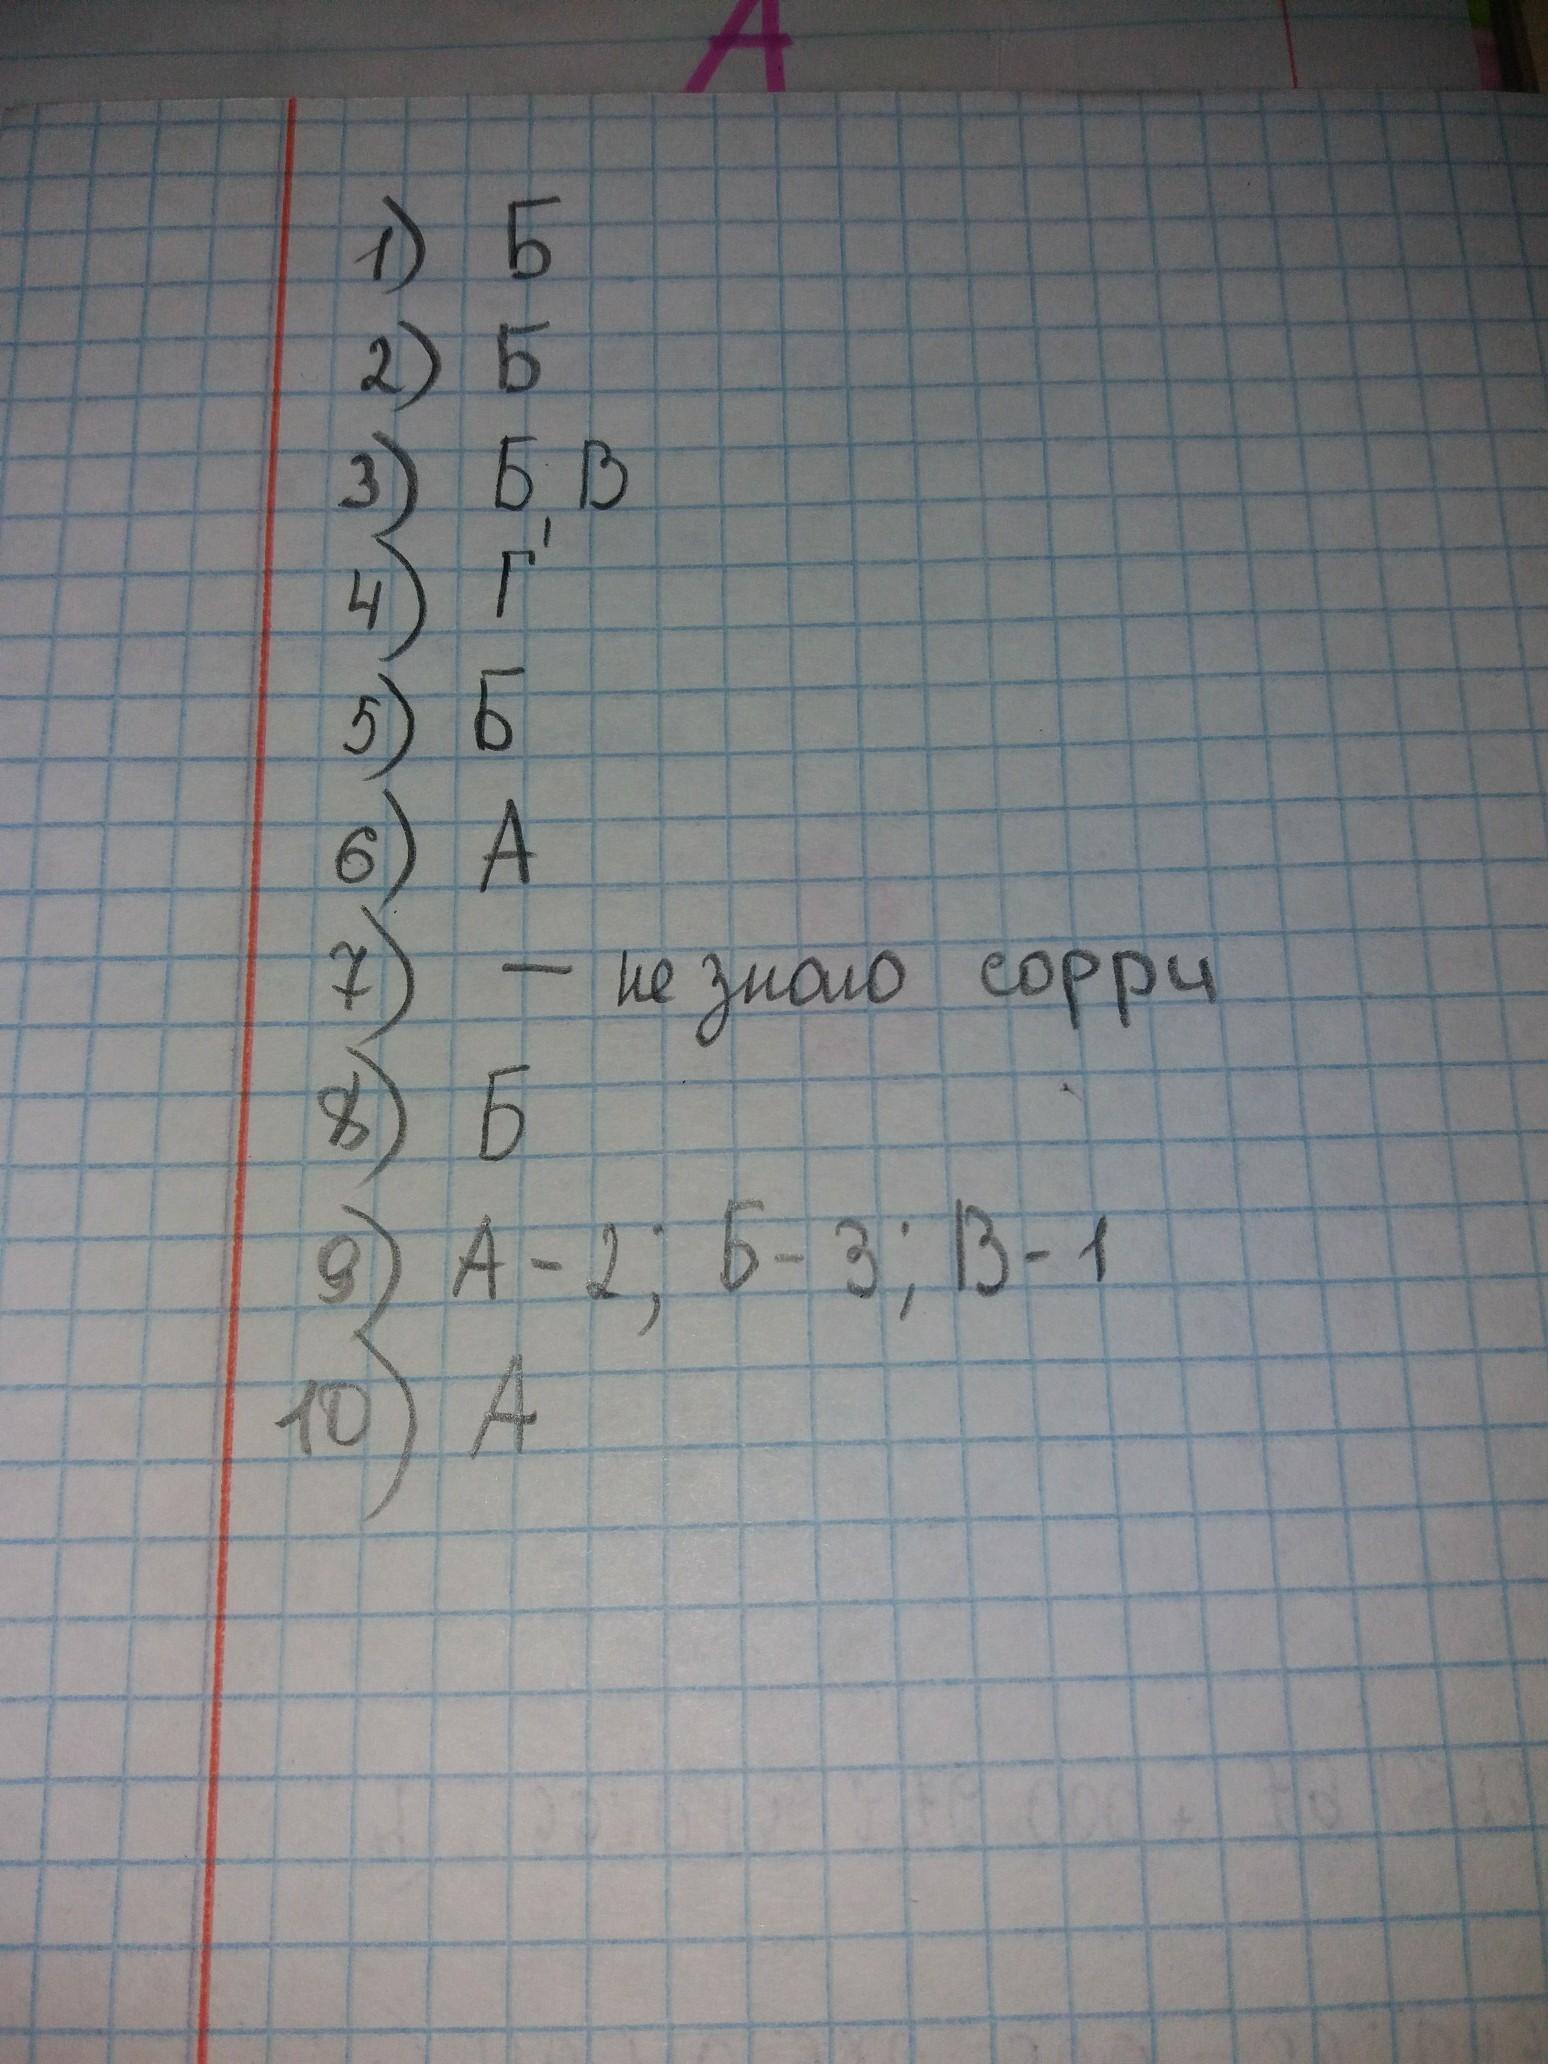 А
1) Б
2) Б
3) Б, В
4) Г
5) Б
6) А
7) — не знаю сорри
8) Б
9) А - 2; Б - 3; В - 1
10) А